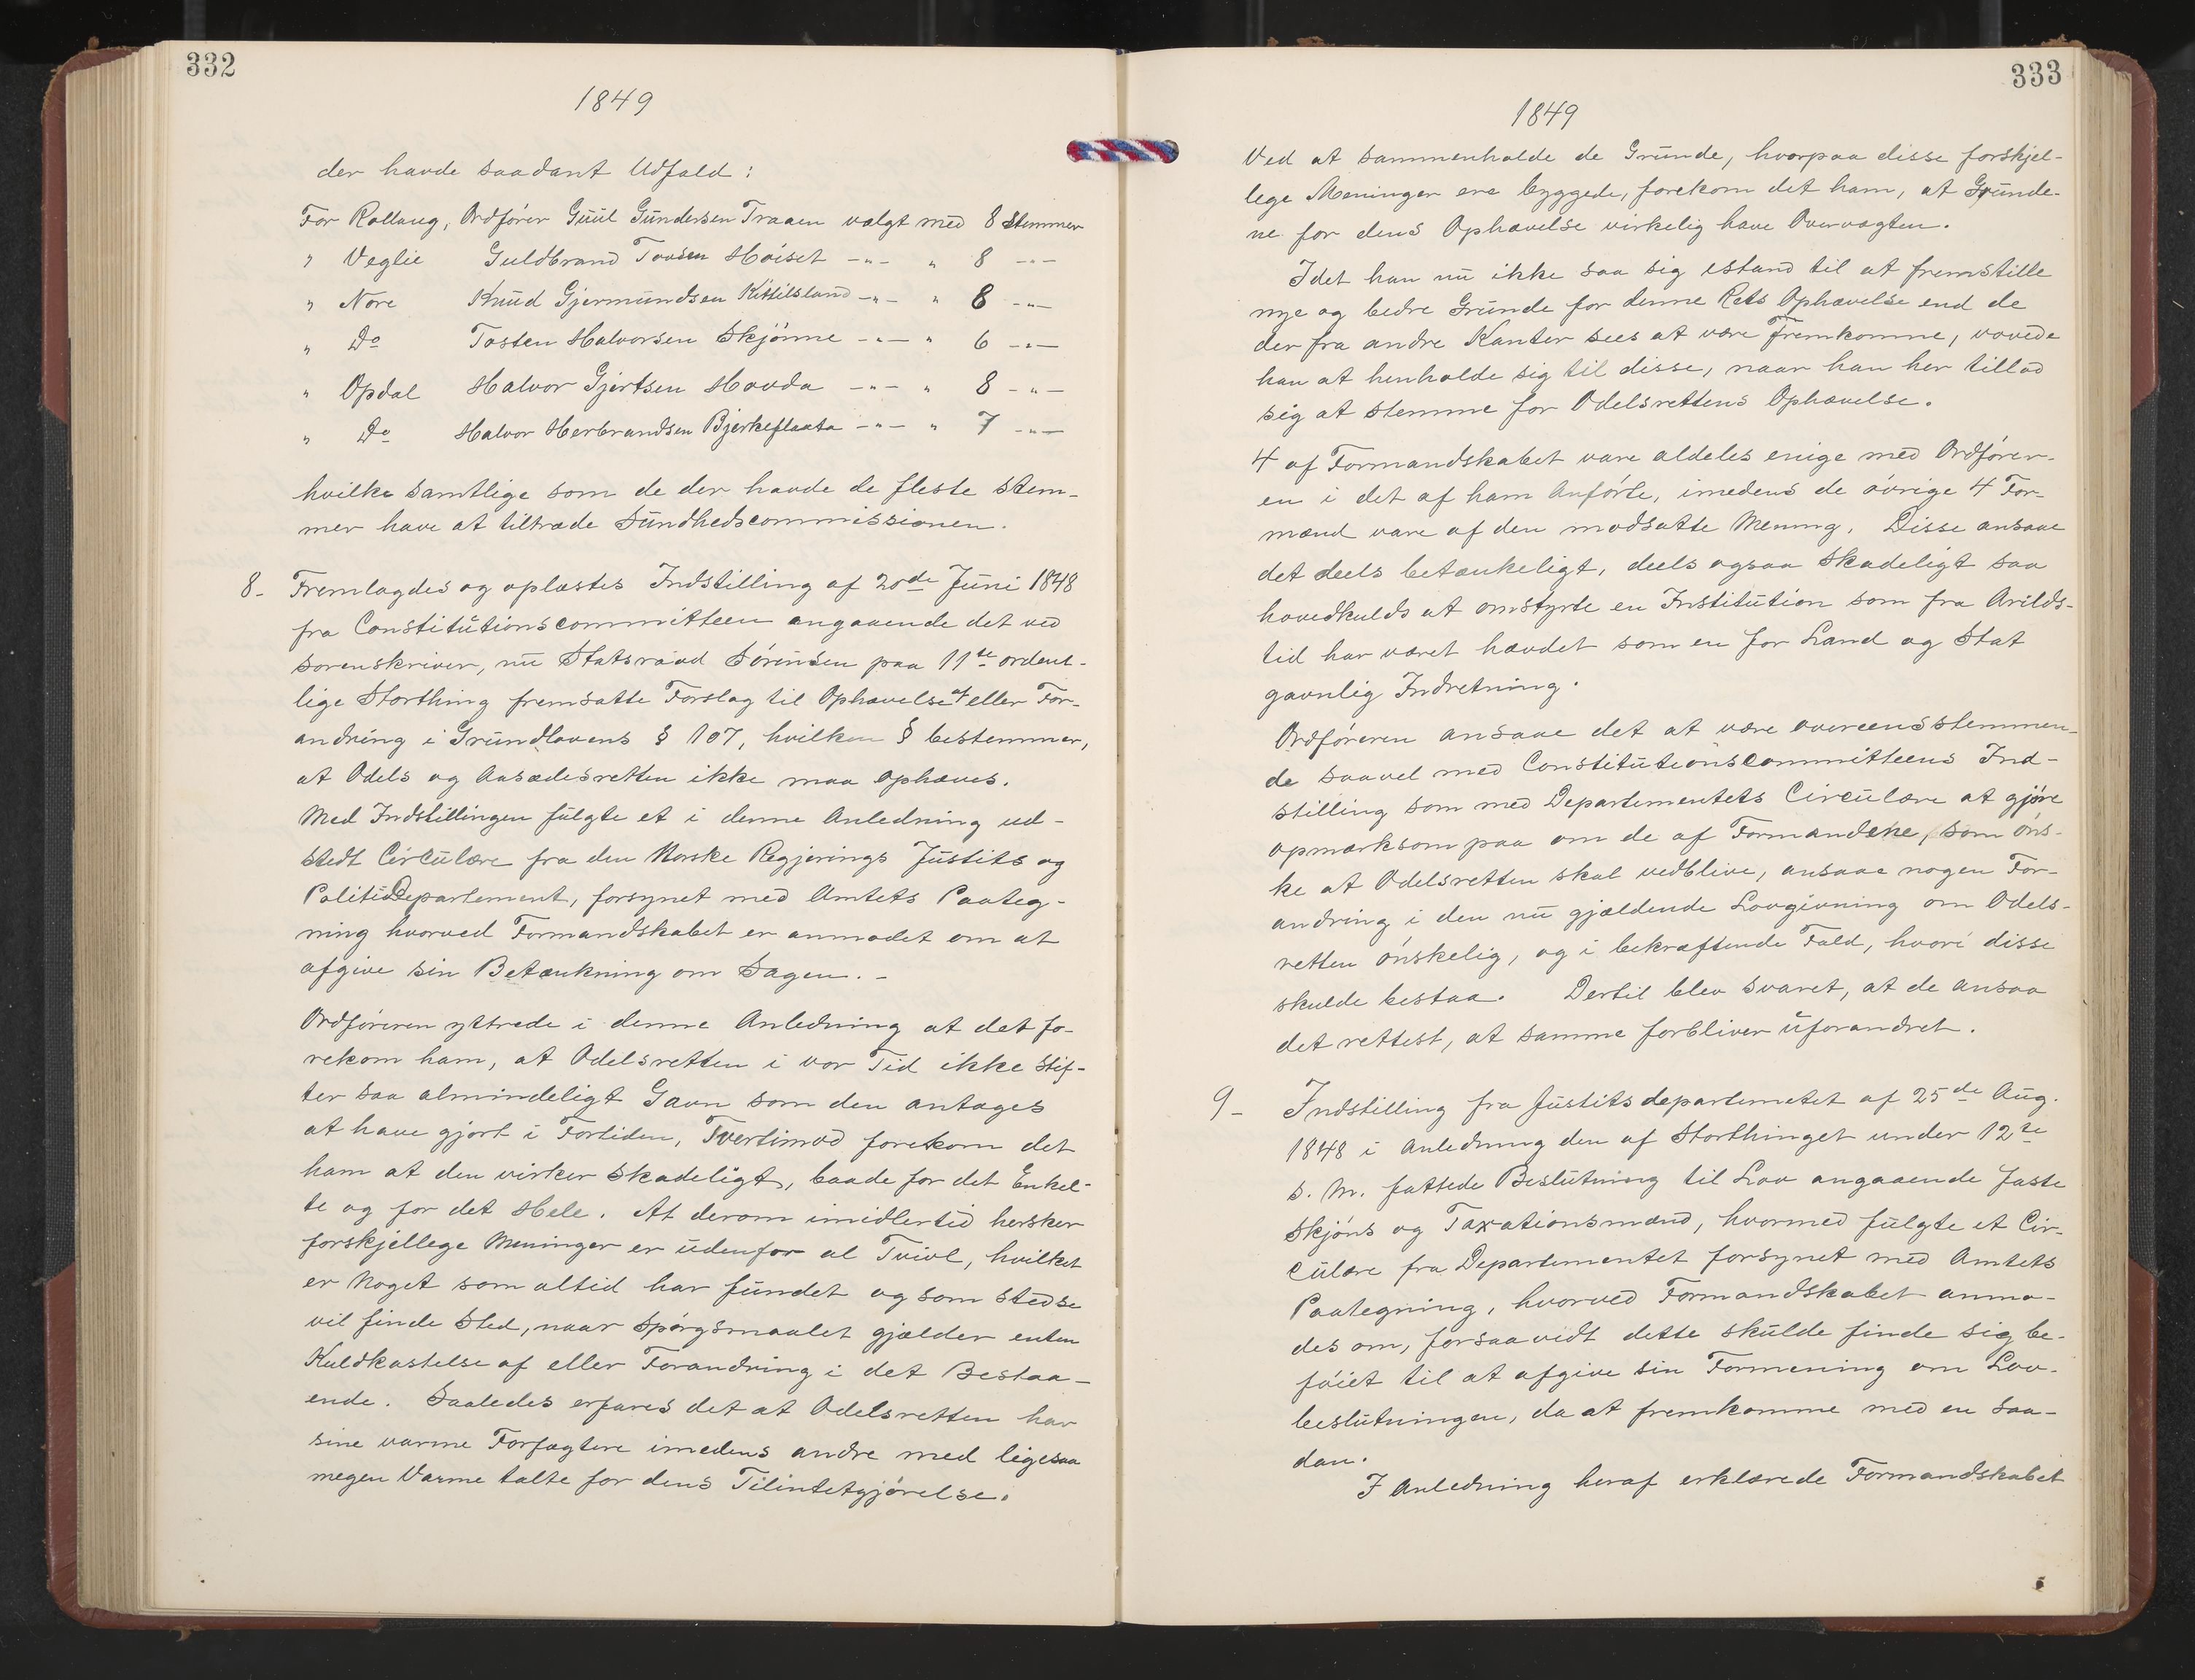 332
1849
der havde saadant Udfald:
For Rollaug, Ordfører Guul Gundersen Traaen valgt med 8 Stemmer
" Veglie Guldbrand Tovsen Høiset -"- " 8 -"-
" Nore Knud Gjermundsen Kittilsland -"- " 8 -"-
" Do Tosten Halvorsen Skjønne -"- " 6 -"-
" Opdal Halvor Gjertsen Hovda -"- " 8 -"-
" Do Halvor Herbrandsen Bjerkeflaata -"- " 7 -"-
hvilke samtlige som de der havde de fleste Stem-
mer have at tiltræde Sundhedscommissionen.
8- Fremlagdes og oplæstes Indstilling af 20de Juni 1848
fra Constitutionscommitteen angaaende det ved
Sorenskriver, nu Statsraad Sørensen paa 11te ordent-
lige Storthing fremsatte Forslag til Ophævelse af eller For-
andring i Grundlovens § 107, hvilken § bestemmer,
at Odels og Aasædesretten ikke maa ophæves.
Med Indstillingen fulgte et i denne Anledning ud-
stedt Circulære fra den Norske Regjerings Justits og
PolitieDepartement, forsynet med Amtets Paateg-
ning hvorved Formandskabet er anmodet om at
afgive sin Betænkning om Sagen. -
Ordføreren yttrede i denne Anledning at det fo-
rekom ham, at Odelsretten i vor Tid ikke Stif-
ter saa almindeligt Gavn som den antages
at have gjort i Fortiden, Tvertimod forekom det
ham at den virker skadeligt, baade for det Enkel-
te og for det Hele. At derom imidlertid hersker
forskjellege Meninger er udenfor al Tvivl, hvilket
er Noget som altid har fundet og som stedse
vil finde Sted, naar Spørgsmaalet gjælder enten
Kuldkastelse af eller Forandring i det Bestaa-
ende. Saaledes erfares det at Odelsretten har
sine varme Forfægtere imedens andre med ligesaa
megen Varme talte for dens Tilintetgjørelse.
333
1849
Ved at sammenholde de Grunde, hvorpaa disse forskjel-
lege Meninger ere byggede, forekom det ham, at Grunde-
ne for dens Ophævelse virkelig have Overvægten.
Idet han nu ikke saa sig istand til at fremstille
nye og bedre Grunde for denne Rets Ophævelse end de
der fra andre Kanter sees at være fremkomne, vovede
han at henholde sig til disse, naar han her tillod
sig at stemme for Odelsrettens Ophævelse.
4 af Formandskabet vare aldeles enige med Ordfører-
en i det af ham Anførte, imedens de øvrige 4 For-
mænd vare af den modsatte Mening. Disse ansaae
det deels betænkeligt, deels ogsaa Skadeligt saa
hovedkulds at omstyrte en Institution som fra Arilds-
tid har været hævdet som en for Land og Stat
gavnlig Indretning.
Ordføreren ansaae det at være overeensstemmen-
de saavel med Constitutionscommitteens Ind-
stilling som med Departementets Circulære at gjøre
opmærksom paa om de af Formændene, som øns-
ke at Odelsretten skal vedblive, ansaae nogen For-
andring i den nu gjældende Lovgivning om Odels-
retten ønskelig, og i bekræftende Fald, hvori disse
skulde bestaa. Dertil blev svaret, at de ansaa
det rettest, at samme forbliver uforandret.
9- Indstilling fra Justitsdepartemetet af 25de Aug.
1848 i Anledning den af Storthinget under 12te
s. M. fattede Beslutning til Lov angaaende faste
Skjøns og Taxationsmænd, hvormed fulgte et Cir-
culære fra Departementet forsynet med Amtets
Paategning, hvorved Formandskabet anmo-
des om, forsaavidt dette skulde finde sig be-
føiet til at afgive sin Formening om Lov-
beslutningen, da at fremkomme med en saa-
dan.
I Anledning heraf erklærede Formandskabet